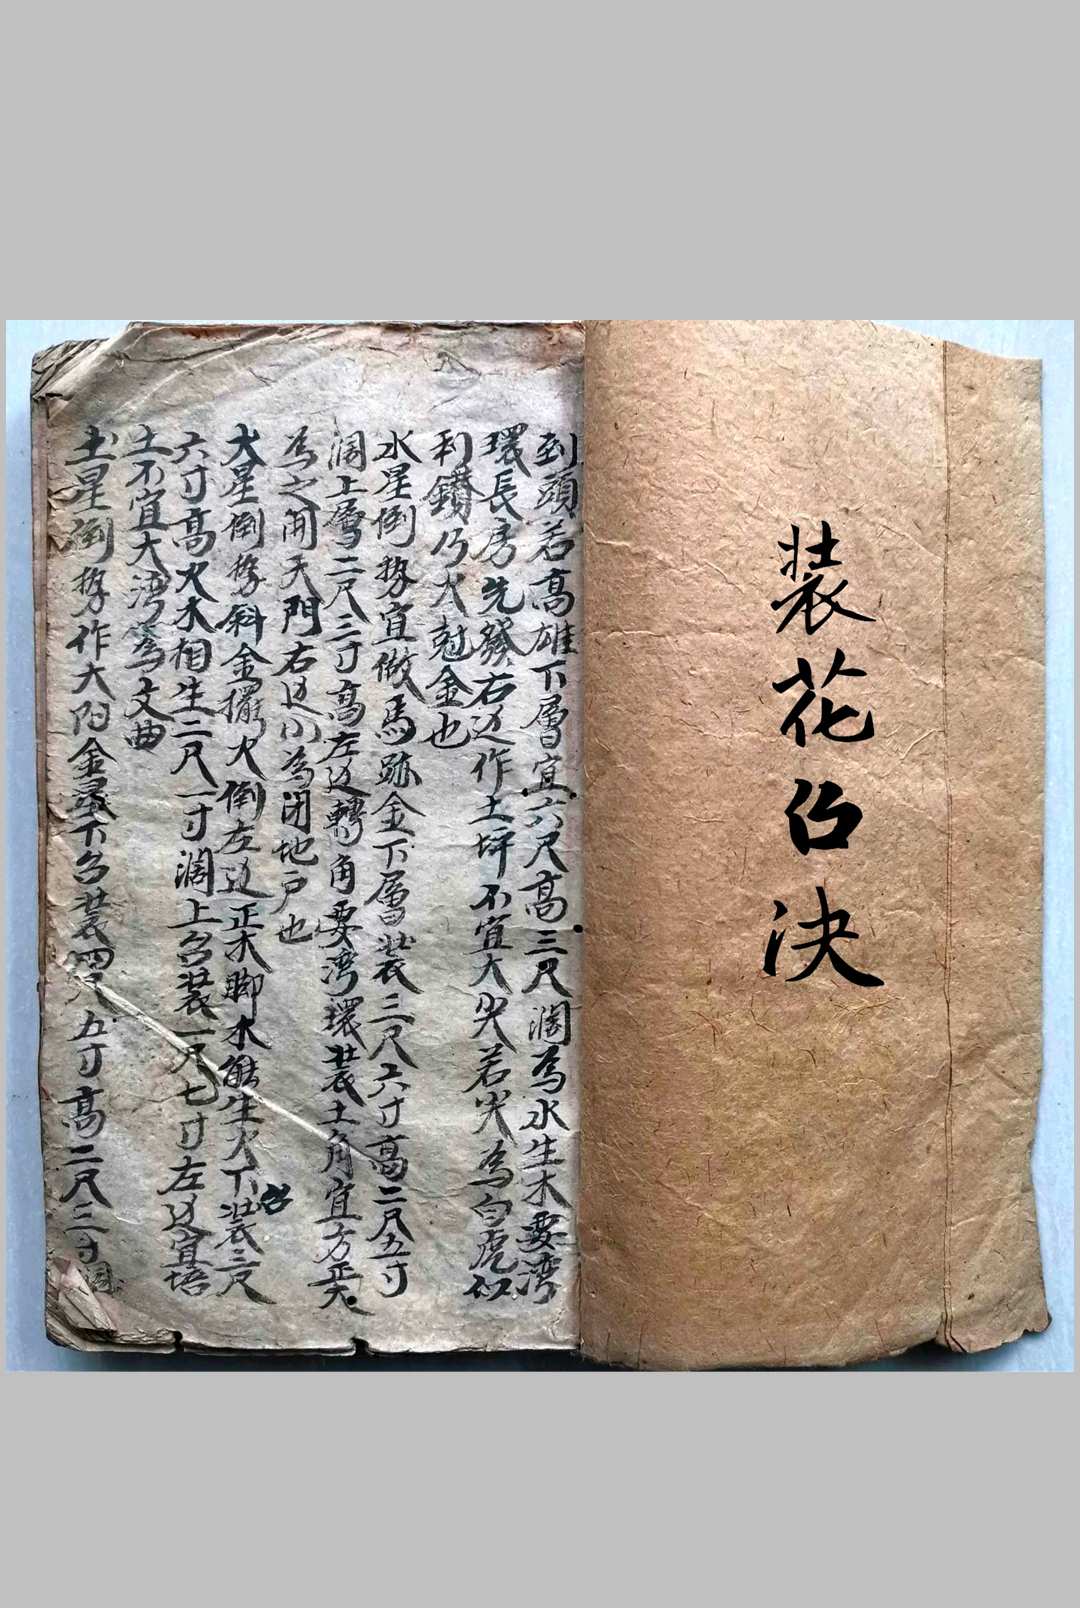 装花台决
到頭若高雄下層宜六尺高三尺濶為水生木要湾
環長房先發右边作土坪不宜大尖若尖為白虎似
利鑽乃火尅金也
水星倒势宜做馬跡金下層装三尺六寸高二尺五寸
濶上層二尺三寸高左边轉角要湾環装土角宜方正大
為之開天門右边小為闭地户也
火星倒势斜金擺火倒左边正木脚木能生火下台装三尺
六寸高火木相生二尺一寸濶上台装一尺七寸左边宜培
土不宜大湾為文曲
土星倒势作大阳金星下台装四尺五寸高二尺三寸濶